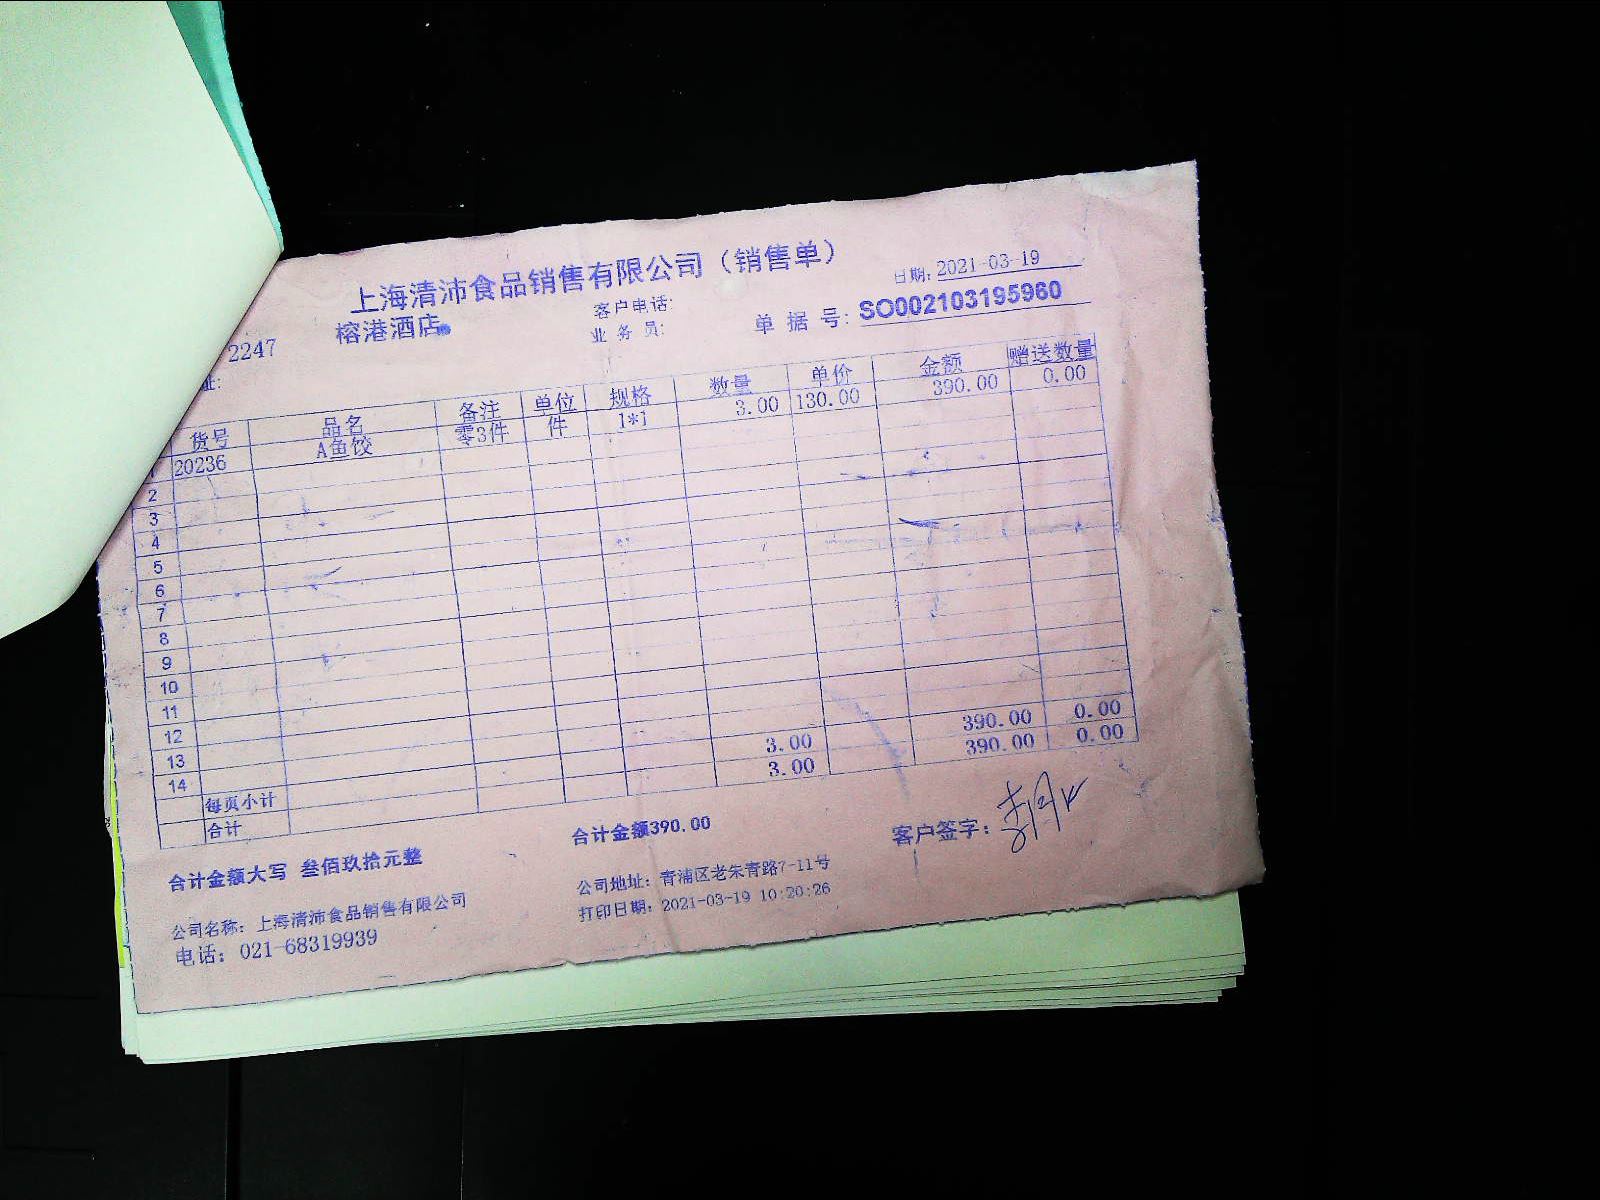 上海清沛食品销售有限公司（销售单）
日期: 2021-03-19
2247 榕港酒店
客户电话:
业务员:
单据号: SO002103195960
址:
货号 品名 备注 单位 规格 数量 单价 金额 赠送数量
1 20236 A鱼饺 零3件 件 1*1 3.00 130.00 390.00 0.00
2
3
4
5
6
7
8
9
10
11
12
13
14
每页小计 3.00 390.00 0.00
合计 3.00 390.00 0.00
合计金额大写 叁佰玖拾元整 合计金额390.00 客户签字:
公司名称: 上海清沛食品销售有限公司 公司地址: 青浦区老朱青路7-11号
电话: 021-68319939 打印日期: 2021-03-19 10:20:26